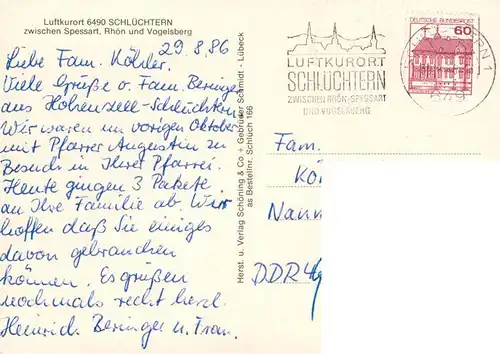 Luftkurort 6490 SCHLÜCHTERN
zwischen Spessart, Rhön und Vogelsberg
29.8.86
Liebe Fam. Köhler.
Viele Grüße v. Fam. Beringer
aus Hohenzell-Schlüchtern
Wir waren im vorigen Oktober
mit Pfarrer Augustin zu
Besuch in Ihrer Pfarrei.
Heute gingen 3 Pakete
an Ihre Familie ab. Wir
hoffen daß Sie einiges
davon gebrauchen
können. Es grüßen
nochmals recht herzl.
Heinrich Beringer u. Frau.
Herst. u. Verlag Schöning & Co + Gebrüder Schmidt - Lübeck
as Bestellnr. Schlüch 166
LUFTKURORT
SCHLÜCHTERN
ZWISCHEN RHÖN-SPESSART
UND VOGELSBERG
DEUTSCHE BUNDESPOST
60
Fam.
Kö
Nann
DDR